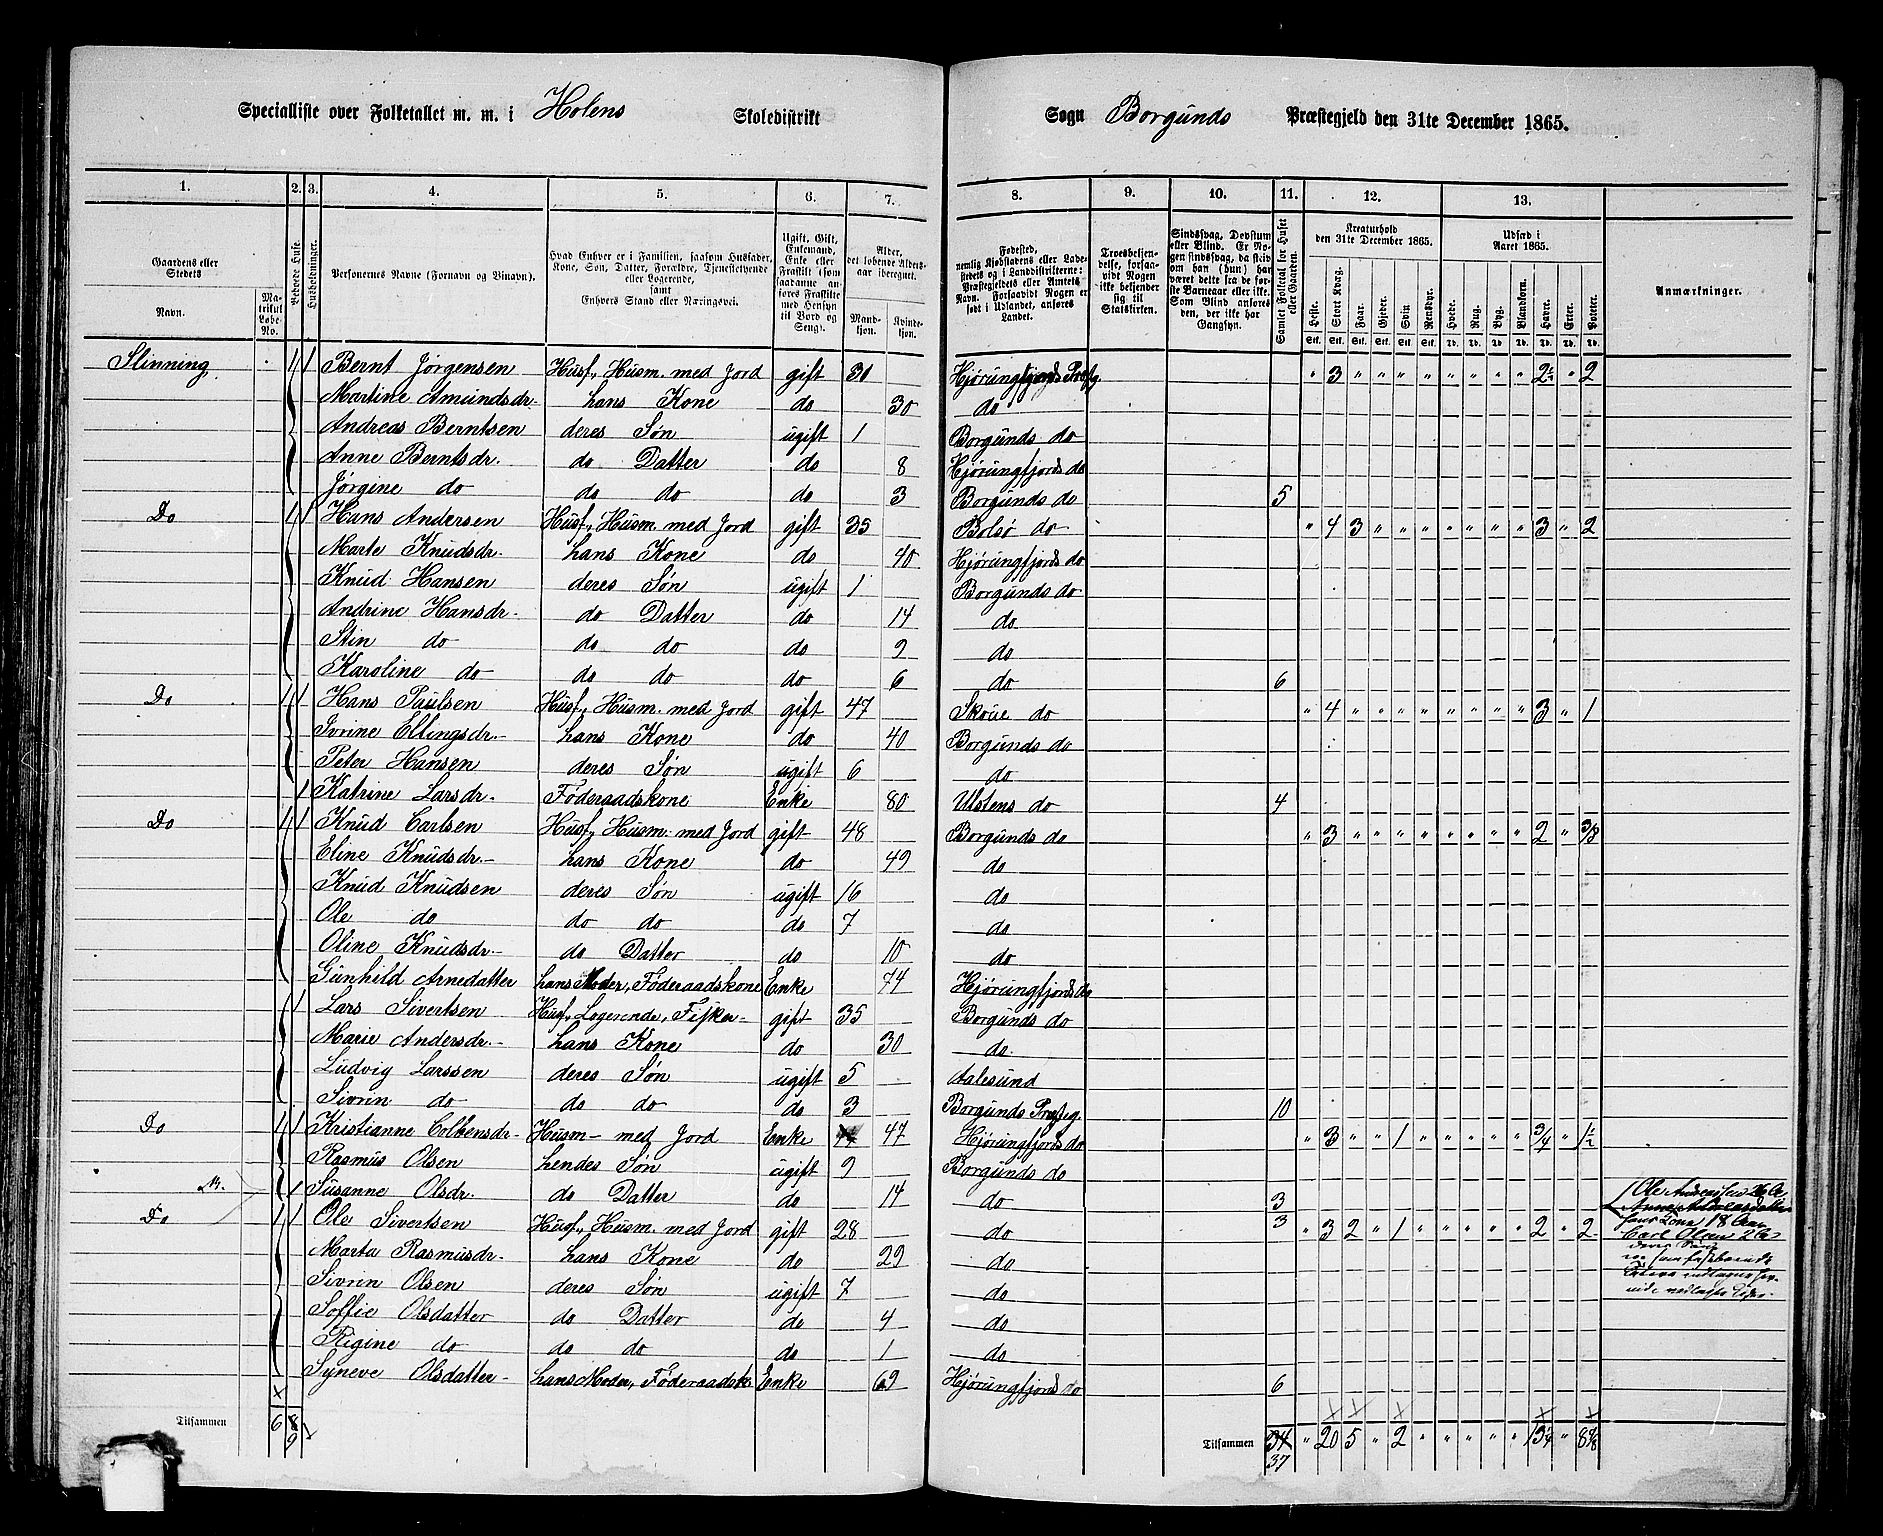 Specialliste over Folketallet m. m. i Holens Skoledistrikt Sogn Borgunds Præstegjeld den 31te December 1865.
1. 2. 3. 4. 5. 6. 7. 8. 9. 10. 11. 12. 13.
Gaardens eller Stedets
Navn.
Matrikul Løbe-No.
Beboede Huse.
Husholdninger.
Personernes Navne (Fornavn og Binavn).
Hvad Enhver er i Familien, saasom Husfader, Kone, Søn, Datter, Forældre, Tjenestetyende eller Logerende, samt Enhvers Stand eller Næringsvei.
Ugift, Gift, Enkemand, Enke eller Fraskilt (som saadanne anføres Fraskilte med Hensyn til Bord og Seng).
Alder, det løbende Aldersaar iberegnet.
Mandkjøn. Kvindekjøn.
Fødested, nemlig Kjøbstadens eller Ladestedets og i Landdistrikterne: Præstegjeldets eller Amtets Navn. Forsaavidt Nogen er født i Udlandet, anføres Landet.
Troesbekjendelse, forsaavidt Nogen ikke bekjender sig til Statskirken.
Sindssvag, Døvstum eller Blind. Er Nogen sindssvag, da skiv om han (hun) har været dette fra de første Barneaar eller ikke. Som Blind anføres den, der ikke har Gangsyn.
Samlet Folketal for Huset eller Gaarden.
Kreaturhold den 31te December 1865.
Heste. Stort Kvæg. Faar. Gjeder. Svin. Rensdyr.
Udsæd i Aaret 1865.
Hvede. Rug. Byg. Blandkorn. Havre. Erter. Poteter.
Anmærkninger.
Slinning 1 1 Bernt Jørgensen Husf., Husm. med Jord gift 30 Hjørungfjords Præstg. " 3 " " " " " " " " 2½ " 2
Martine Amundsdr. hans Kone do 30 do
Andreas Berntsen deres Søn ugift 1 Borgunds do
Anne Berntsdr. do Datter do 8 Hjørungfjords do
Jørgine do do do do 3 Borgunds do 5
Do 1 1 Hans Andersen Husf., Husm. med Jord gift 35 Bolsø do " 4 3 " " " " " " " 3 " 2
Marte Knudsdr. hans Kone do 40 Hjørungfjords do
Knud Hansen deres Søn ugift 1 Borgunds do
Andrine Hansdr. do Datter do 14 do
Stin do do do do 9 do
Karoline do do do do 6 do 6
Do 1 1 Hans Paulsen Husf., Husm. med Jord gift 47 Skoue do " 4 " " " " " " " " 3 " 1
Ivrine Ellingsdr. hans Kone do 40 Borgunds do
Peter Hansen deres Søn ugift 6 do
1 Katrine Larsdr. Føderaadskone Enke 80 Ulstens do 4
Do 1 1 Knud Carlsen Husf., Husm. med Jord gift 48 Borgunds do " 3 " " " " " " " " 2 " 3/8
Eline Knudsdr. hans Kone do 49 do
Knud Knudsen deres Søn ugift 16 do
Ole do do do do 7 do
Oline Knudsdr. do Datter do 10 do
Gunhild Arnedatter hans Moder, Føderaadskone Enke 74 Hjørungfjords do
1 Lars Sivertsen Husf., Logerende, Fisker gift 35 Borgunds do
Marie Andersdr. hans Kone do 30 do
Ludvig Larssen deres Søn ugift 5 Aalesund
Sivrin do do do do 3 Borgunds Præstg. 10
Do 1 1 Kristianne Colbensdr. Husm- med Jord Enke 47 Hjørungfjords do " 3 " " 1 " " " " " 3/4 " 1½
Rasmus Olsen hendes Søn ugift 9 Borgunds do
1 Susanne Olsdr. do Datter do 14 do 3
3
Do 1 1 Ole Sivertsen Husf., Husm. med Jord gift 28 do " 3 2 " 1 " " " " " 2 " 2
Ole Andreassen 26 A
hans Kone 18 Aar
Carl Olsen 2 A
Marta Rasmusdr. hans Kone do 29 do
Sivrin Olsen deres Søn ugift 7 do
Soffie Olsdatter do Datter do 4 do
Rigine do do do do 1 do
Syneve Olsdatter hans Moder, Føderaadsk. Enke 69 Hjørungfjords do 6
Tilsammen 6 8 9
Tilsammen 34 " 20 5 " 2 " " " " " 13¼ " 8⅞
37